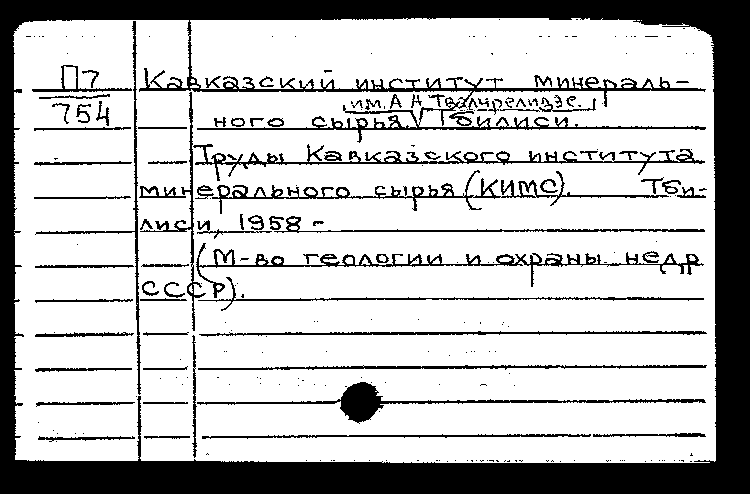 П7
754
Кавказский институт минераль-
им. А. Н. Твалчрелидзе.
ного сырья, Тбилиси.
Труды Кавказского института
минерального сырья (КИМС). Тби-
лиси, 1958 -
(М-во геологии и охраны недр
СССР).